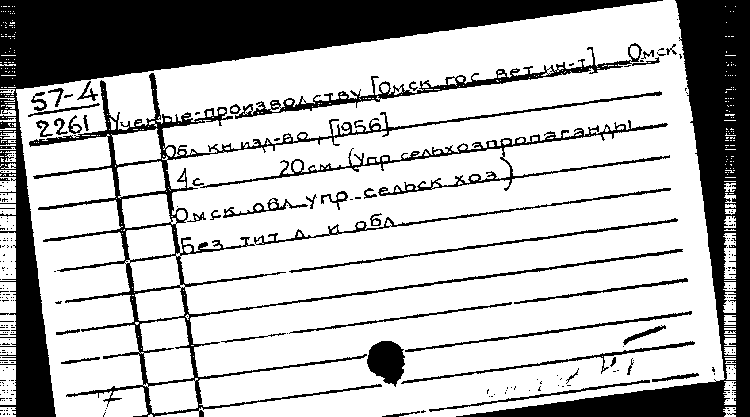 57-4
2261
Ученые-производству [Омск. гос. вет. ин-т]. Омск,
Обл. кн. изд-во, [1956]
4 с. 20 см. (Упр. сельхозпропаганды
Омск. обл. упр. сельск. хоз.)
Без тит. л. и обл.